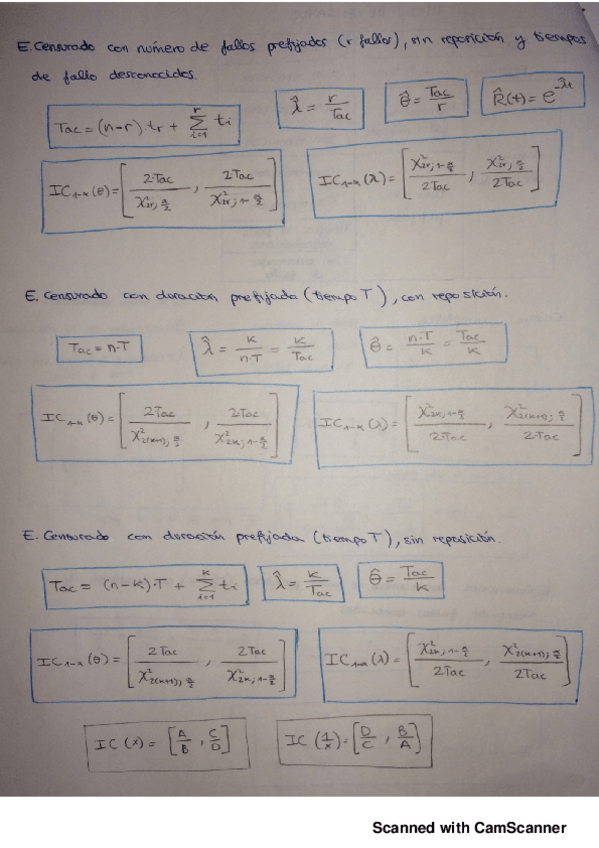 E. Censurado con número de fallos prefijados (r fallos), sin reposición y tiempos
de fallo desconocidos.
Tac = (n-r) tr + Σ_{i=1}^{r} ti
λ̂ = r/Tac
θ̂ = Tac/r
R̂(t) = e^{-λ̂t}
IC₁₋α(θ) = [2·Tac / χ²_{2r; α/2} , 2Tac / χ²_{2r; 1-α/2}]
IC₁₋α(λ) = [χ²_{2r; 1-α/2} / 2Tac , χ²_{2r; α/2} / 2Tac]
E. Censurado con duración prefijada (tiempo T), con reposición.
Tac = n·T
λ̂ = k/n·T = k/Tac
θ̂ = n·T/k = Tac/k
IC₁₋α(θ) = [2Tac / χ²_{2(k+1); α/2} , 2·Tac / χ²_{2k; 1-α/2}]
IC₁₋α(λ) = [χ²_{2k; 1-α/2} / 2·Tac , χ²_{2(k+1); α/2} / 2·Tac]
E. Censurado con duración prefijada (tiempo T), sin reposición.
Tac = (n-k)·T + Σ_{i=1}^{k} ti
λ̂ = k/Tac
θ̂ = Tac/k
IC₁₋α(θ) = [2Tac / χ²_{2(k+1); α/2} , 2Tac / χ²_{2k; 1-α/2}]
IC₁₋α(λ) = [χ²_{2k; 1-α/2} / 2Tac , χ²_{2(k+1); α/2} / 2Tac]
IC (x) = [A/B , C/D]
IC (1/x) = [D/C , B/A]
Scanned with CamScanner